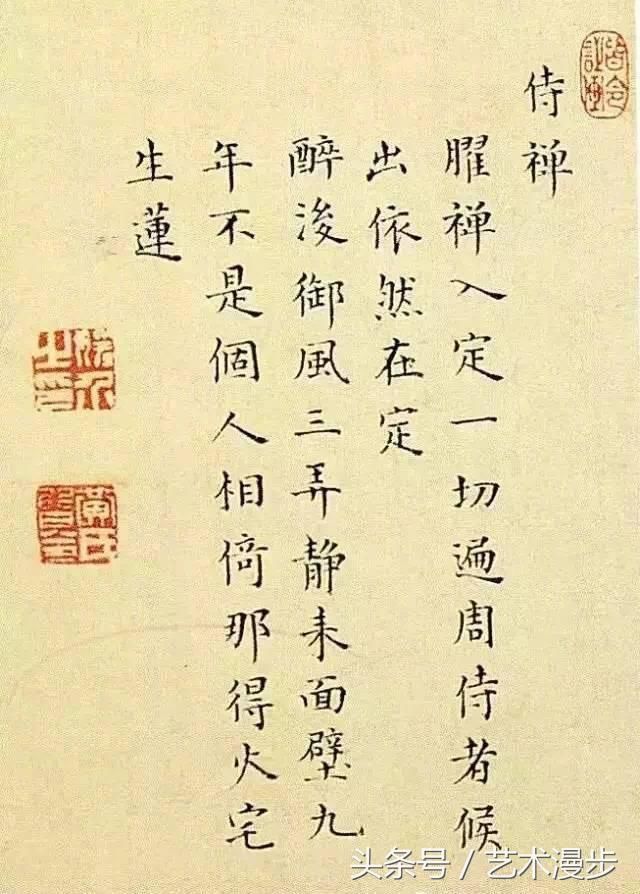 侍禅
臞禅入定一切遍周侍者候
出依然在定
醉後御風三弄静来面壁九
年不是個人相倚那得火宅
生蓮
头条号 / 艺术漫步